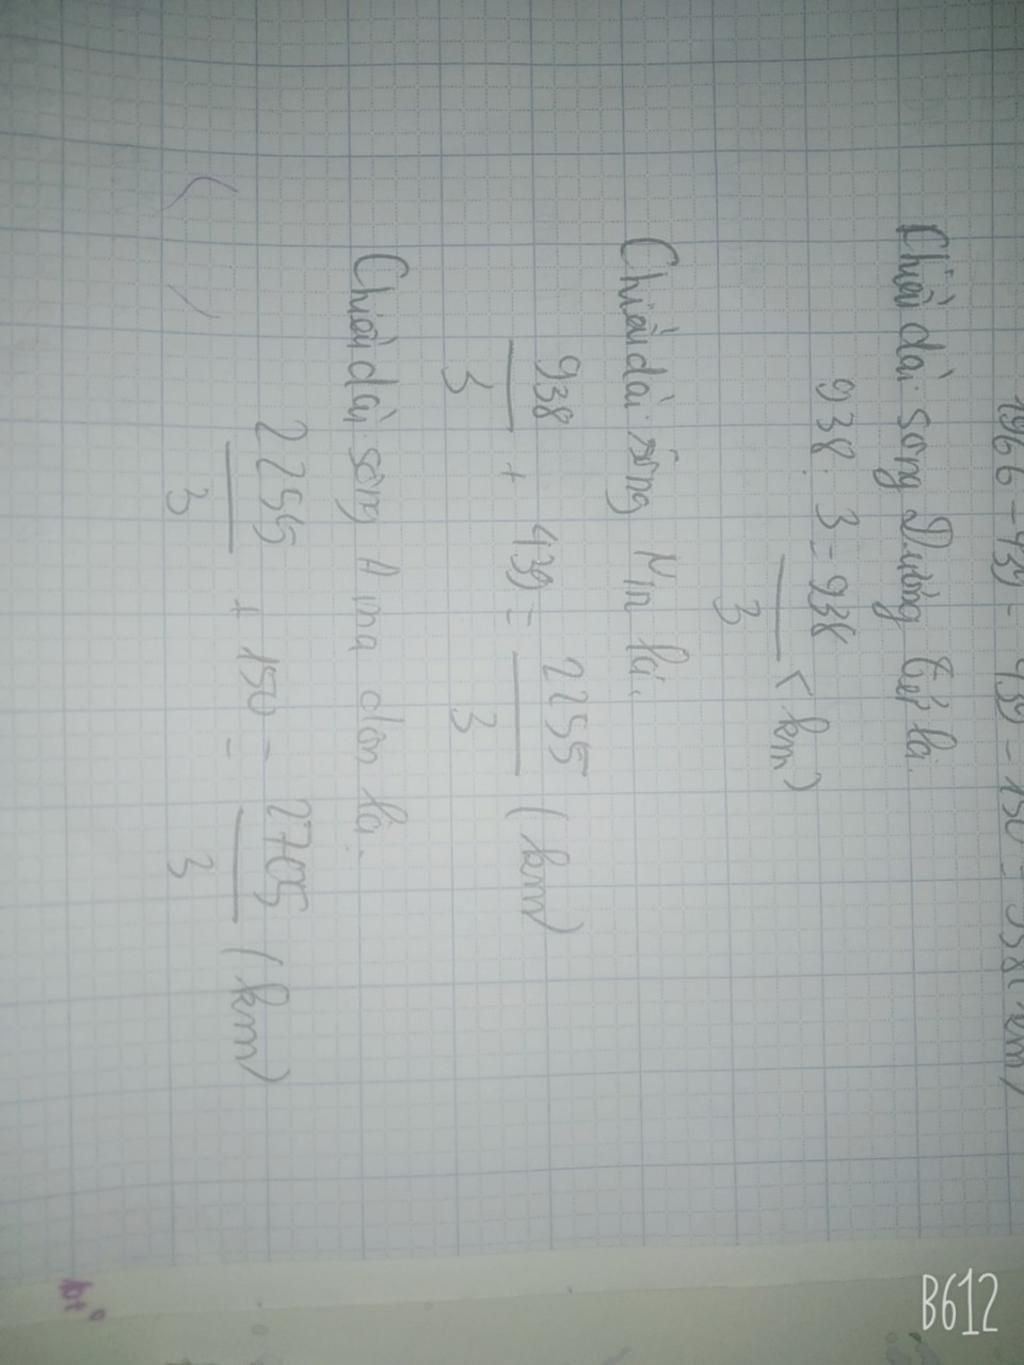 1966 - 439 - 439 - 150 = 938 (km)
Chiều dài sông Dương tử là.
938 : 3 = 938/3 (km)
Chiều dài sông Nin là.
938/3 + 439 = 2255/3 (km)
Chiều dài sông A ma dôn là.
2255/3 + 150 = 2705/3 (km)
B612